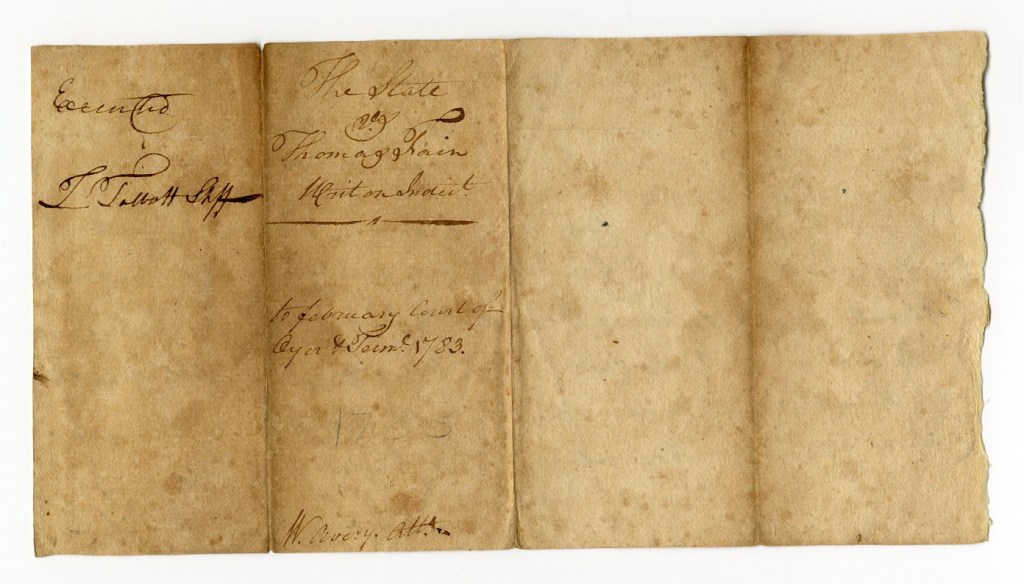 Executed
T Talbott Shff
The State
vs
Thomas Fain
Writ on Indict.
to february Court of
Oyer & Term. 1783.
1783
W. Avery. Atto.